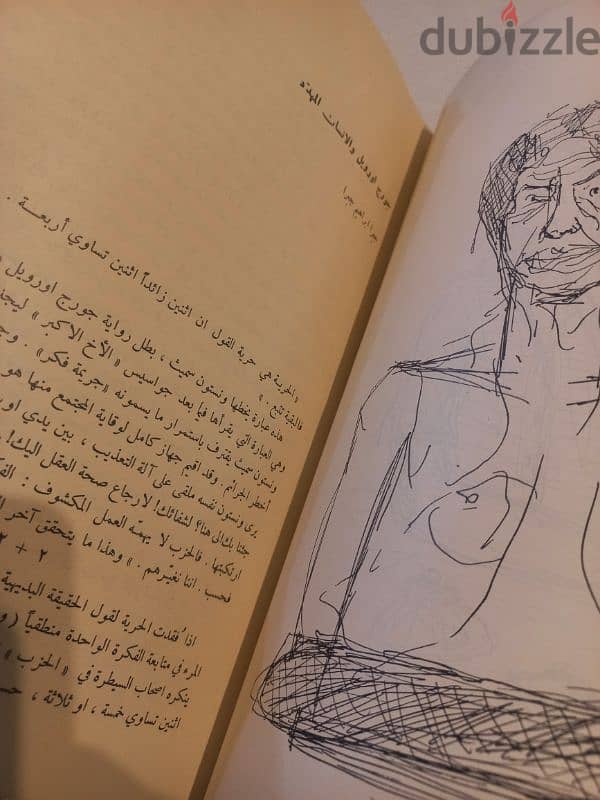 dubizzle
جورج اورويل والانسان المهدد
جبرا ابراهيم جبرا
«الحرية هي حرية القول ان اثنين زائداً اثنين تساوي أربعة .
فالبقية تتبع . »
هذه عبارة يخطها ونستون سميث ، بطل رواية جورج اورويل
وهي العبارة التي يقرأها فيما بعد جواسيس «الأخ الاكبر» ليجد
ونستون سميث يقترف باستمرار ما يسمونه «جريمة فكر» . وجـ
أخطر الجرائم . وقد اقيم جهاز كامل لوقاية المجتمع منها هو
يرى ونستون نفسه ملقى على آلة التعذيب ، بين يدي او
جئنا بك الى هنا؟ لشفائك! لارجاع صحة العقل اليك!
ارتكبتها . فالحزب لا يهمّه العمل المكشوف : الفـ
فحسب . اننا نغيّرهم . » وهذا ما يتحقق آخر
٢ + ٢
اذا فُقدت الحرية لقول الحقيقة البديهية
المرء في متابعة الفكرة الواحدة منطقياً (و
ينكره اصحاب السيطرة في «الحزب»
اثنين تساوي خمسة ، او ثلاثة ، حسـ